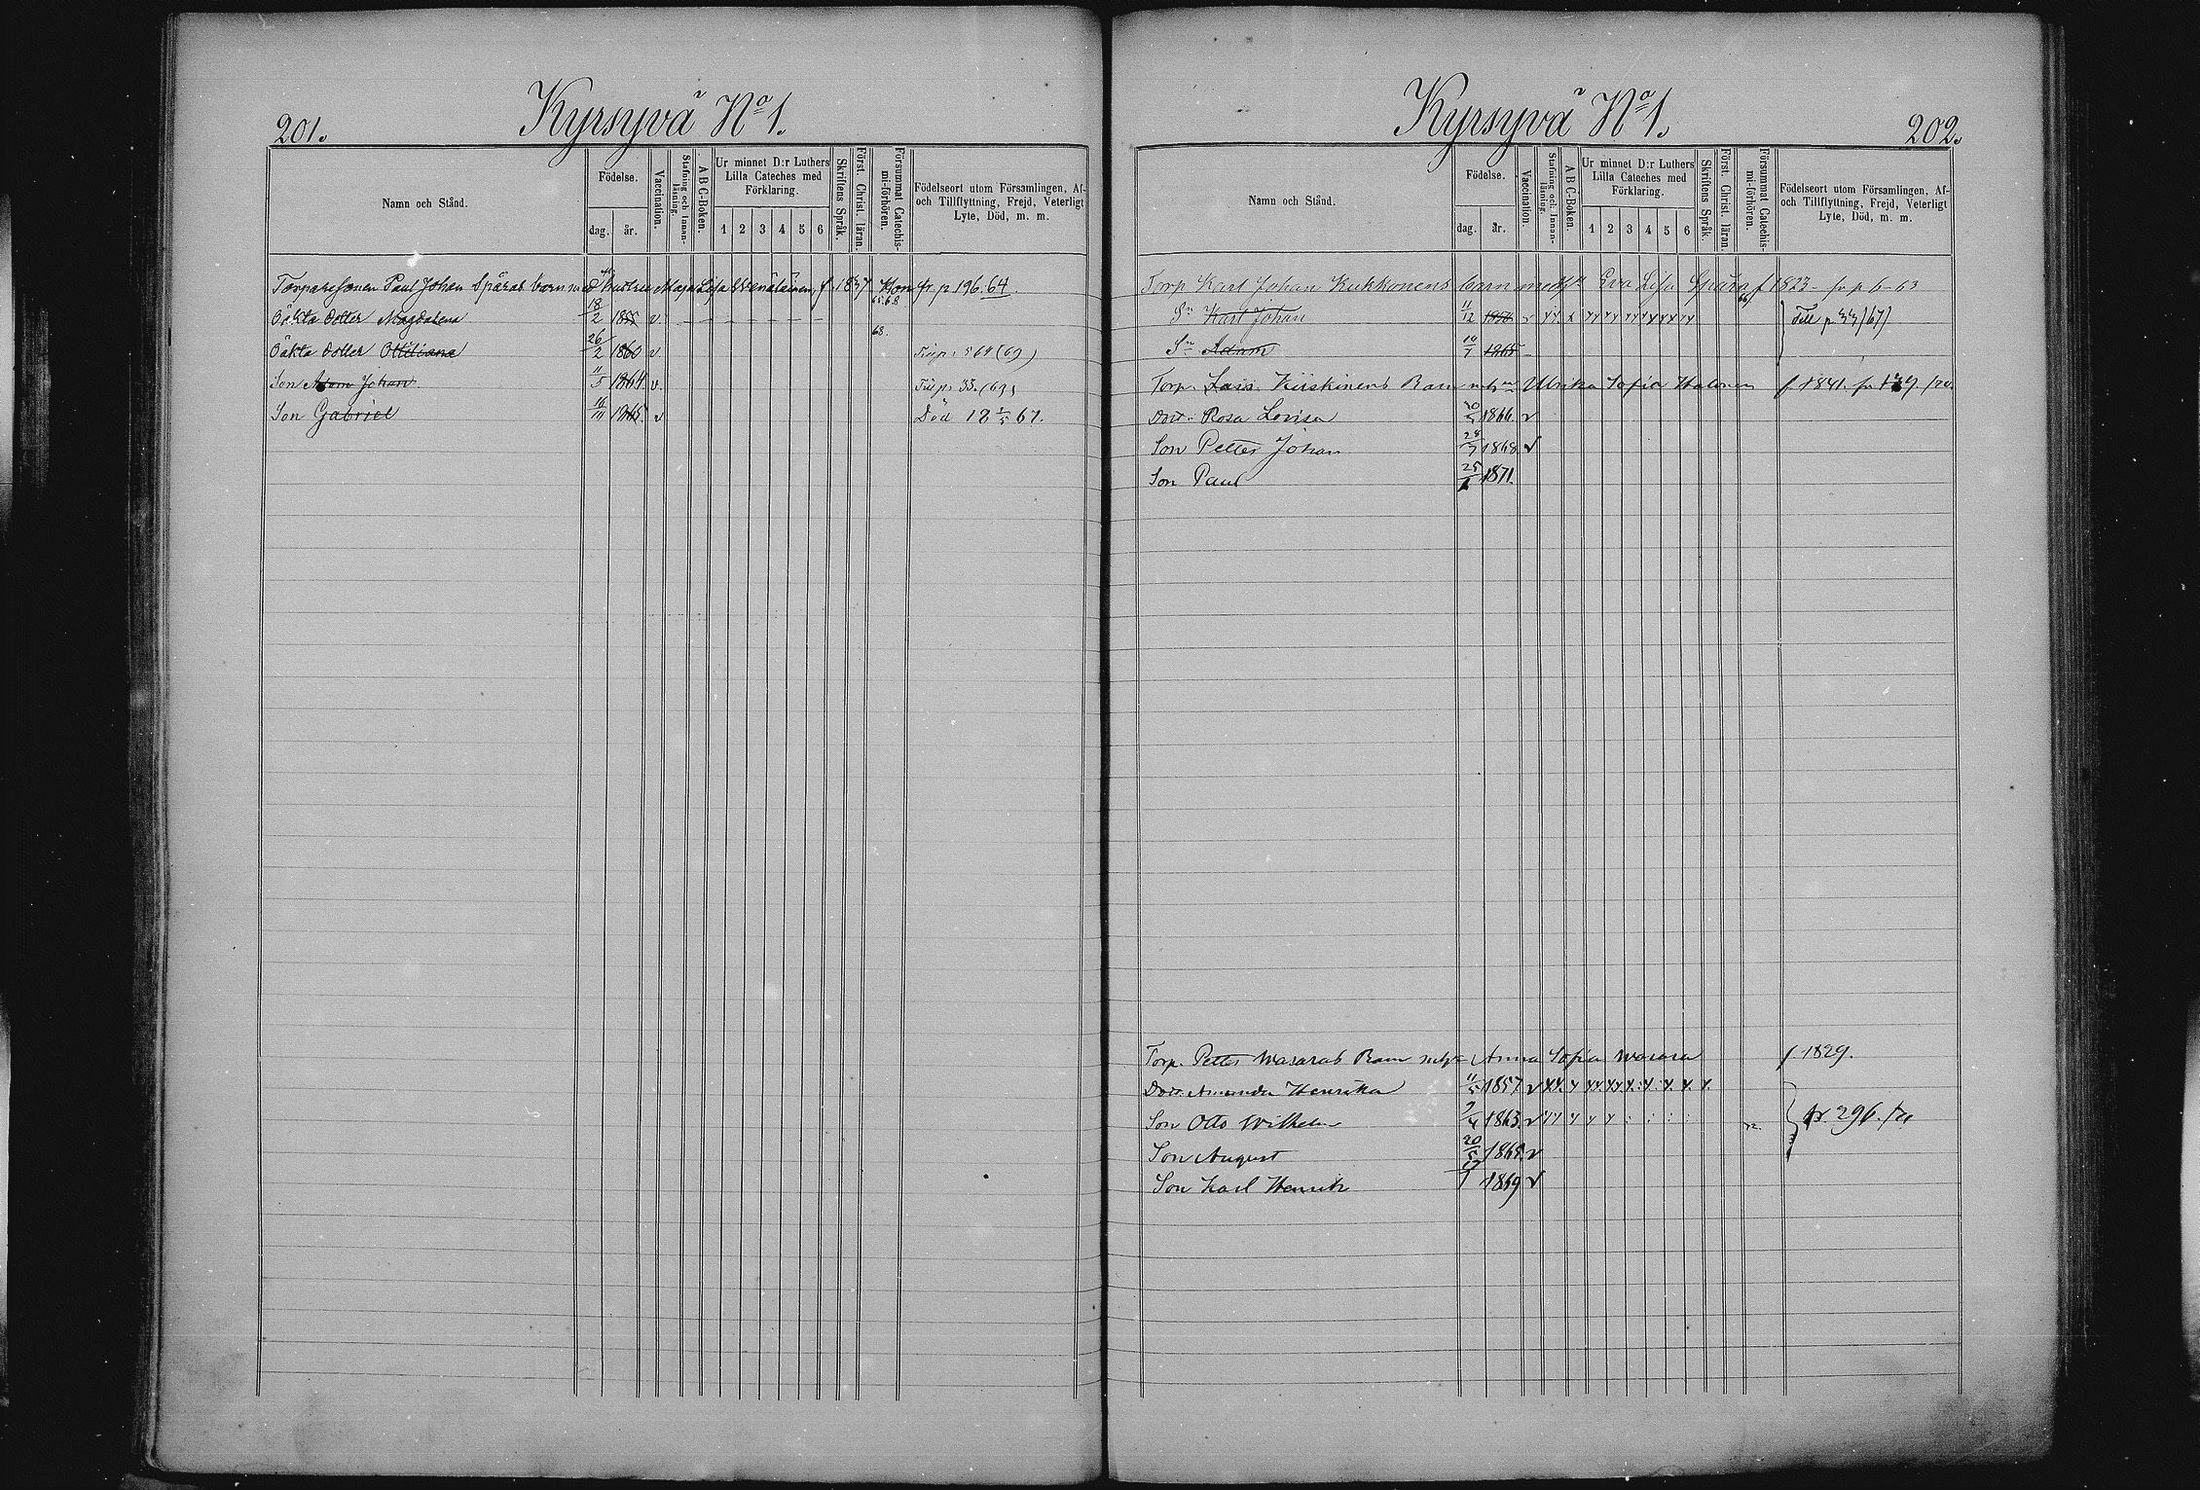 201.
Kyrsyvä No 1.
Namn och Stånd.
Födelse.
dag.
år.
Vaccination.
Stafning och Innan-
läsning.
A B C-Boken.
Ur minnet D:r Luthers
Lilla Cateches med
Förklaring.
1 2 3 4 5 6
Skriftens Språk.
Först. Christ. läran.
Försummat Catechis-
mi-förhören.
Födelseort utom Församlingen, Af-
och Tillflyttning, Frejd, Veterligt
Lyte, Död, m. m.
Torparesonen Paul Johan Spåras barn med hustrun Maja Lisa Venäläinen, f. 1837. Kom fr. p 196. 64.
65.68
Oäkta dotter Magdalena 18/2 1855 v. – – – – – – – –
68.
Oäkta dotter Ottiliana 26/2 1860 v. 564 (69)
Son Adam Johan 11/5 1864. v. 33. (69)
Son Gabriel 16/11 1865. v Död 18 1/5 67.
Kyrsyvä No 1.
202.
Namn och Stånd.
Födelse.
dag.
år.
Vaccination.
Stafning och Innan-
läsning.
A B C-Boken.
Ur minnet D:r Luthers
Lilla Cateches med
Förklaring.
1 2 3 4 5 6
Skriftens Språk.
Först. Christ. läran.
Försummat Catechis-
mi-förhören.
Födelseort utom Församlingen, Af-
och Tillflyttning, Frejd, Veterligt
Lyte, Död, m. m.
Torp Karl Johan Kukkonens barn med Eva Lisa Spåra f 1823 – fr p 6–63
Sn Karl Johan 11/12 1856 v Till p 33 (67)
Sn Adam 1865 –
Torp. Lars Kiiskinens Barn m hu Ulrika Sofia Halonen f. 1841.
Dott. Rosa Lovisa 1866. v
Son Petter Johan 28/7 1868 v
Son Paul 25/ 1871.
Torp. Petter Wasaras Barn m h Anna Sofia Wasara f. 1829.
Dott. Amanda Henrika 11/5 1857 v
Son Otto Wilhelm 9/4 1863. v fr. 296.
Son August 20/5 v
Son Karl Henrik 1869 v